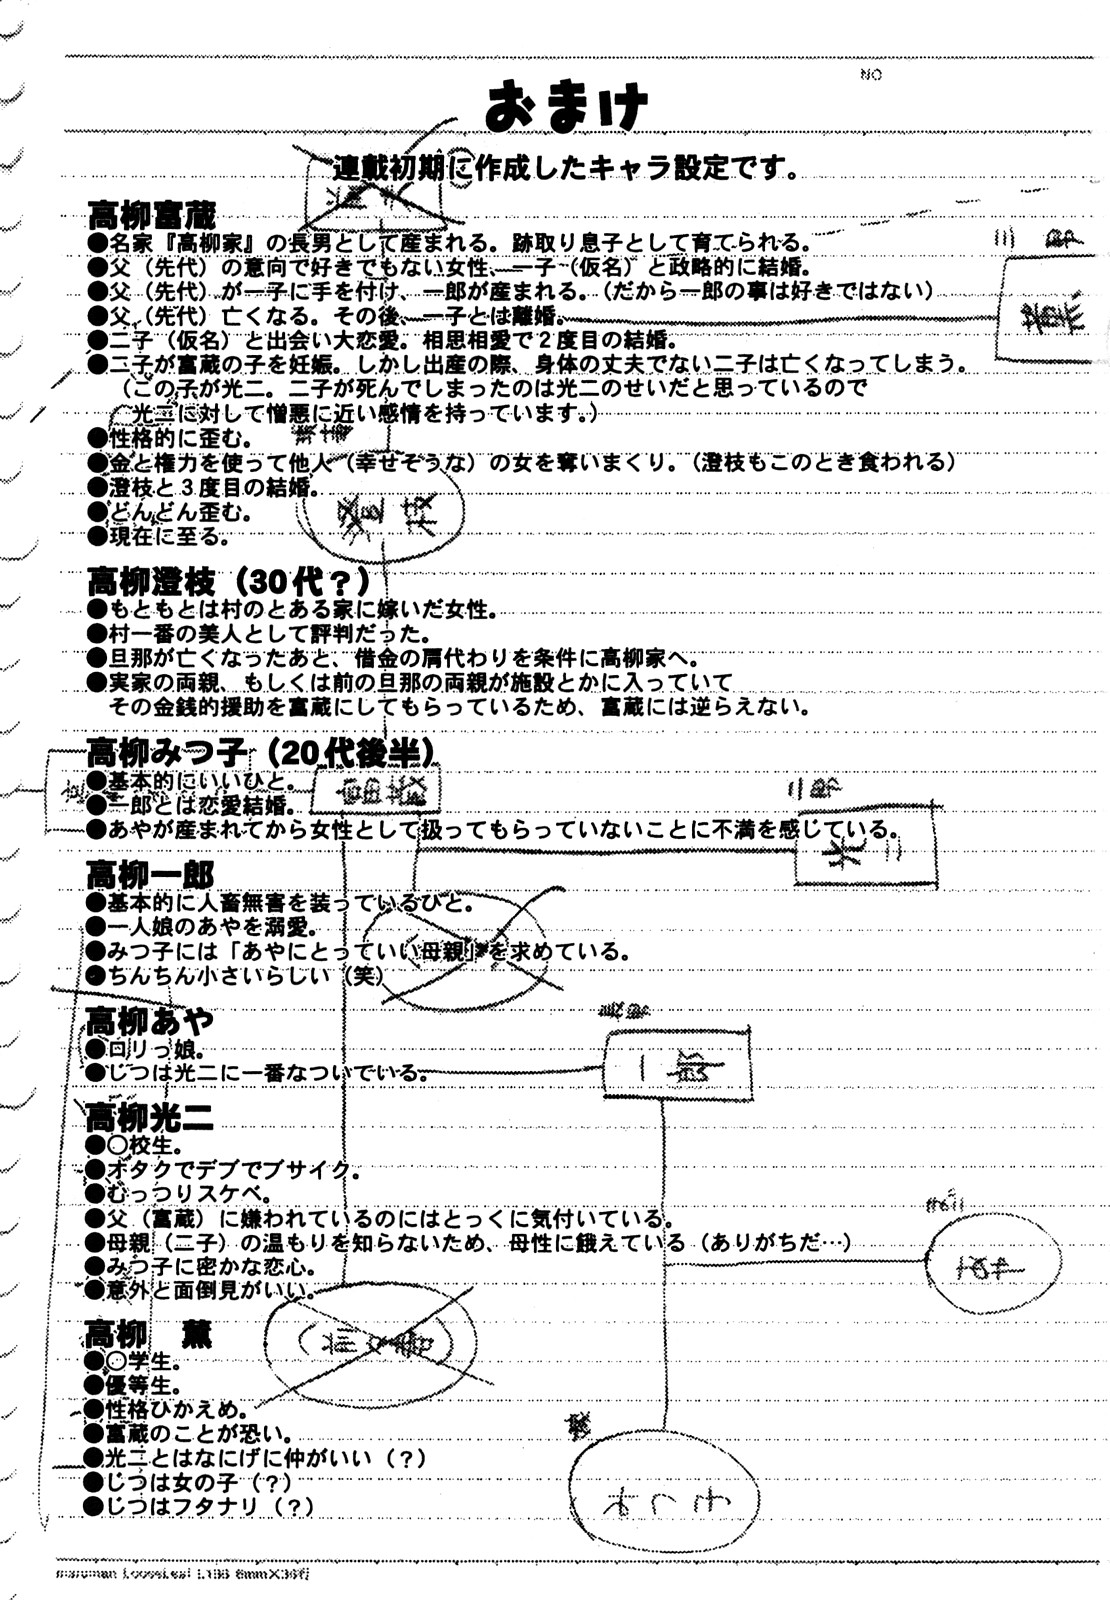 NO
おまけ
連載初期に作成したキャラ設定です。
高柳富蔵
●名家『高柳家』の長男として産まれる。跡取り息子として育てられる。
●父（先代）の意向で好きでもない女性、一子（仮名）と政略的に結婚。
●父（先代）が一子に手を付け、一郎が産まれる。（だから一郎の事は好きではない）
●父（先代）亡くなる。その後、一子とは離婚。
●二子（仮名）と出会い大恋愛。相思相愛で２度目の結婚。
●二子が富蔵の子を妊娠。しかし出産の際、身体の丈夫でない二子は亡くなってしまう。
（この子が光二。二子が死んでしまったのは光二のせいだと思っているので
光二に対して憎悪に近い感情を持っています。）
●性格的に歪む。
●金と権力を使って他人（幸せそうな）の女を奪いまくり。（澄枝もこのとき食われる）
●澄枝と３度目の結婚。
●どんどん歪む。
●現在に至る。
高柳澄枝（30代？）
●もともとは村のとある家に嫁いだ女性。
●村一番の美人として評判だった。
●旦那が亡くなったあと、借金の肩代わりを条件に高柳家へ。
●実家の両親、もしくは前の旦那の両親が施設とかに入っていて
その金銭的援助を富蔵にしてもらっているため、富蔵には逆らえない。
高柳みつ子（20代後半）
●基本的にいいひと。
●一郎とは恋愛結婚。
●あやが産まれてから女性として扱ってもらっていないことに不満を感じている。
光二
高柳一郎
●基本的に人畜無害を装っているひと。
●一人娘のあやを溺愛。
●みつ子には「あやにとっていい母親」を求めている。
●ちんちん小さいらしい（笑）
高柳あや
●ロリっ娘。
●じつは光二に一番なついている。
一郎
高柳光二
●○校生。
●オタクでデブでブサイク。
●むっつりスケベ。
●父（富蔵）に嫌われているのにはとっくに気付いている。
●母親（二子）の温もりを知らないため、母性に餓えている（ありがちだ…）
●みつ子に密かな恋心。
●意外と面倒見がいい。
高柳　薫
●○学生。
●優等生。
●性格ひかえめ。
●富蔵のことが恐い。
●光二とはなにげに仲がいい（？）
●じつは女の子（？）
●じつはフタナリ（？）